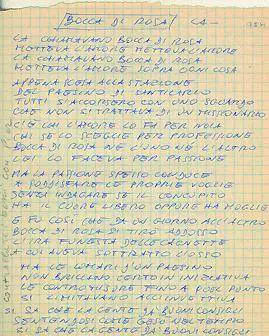 BOCCA DI ROSA LA-
LA CHIAMAVANO BOCCA DI ROSA
METTEVA L'AMORE METTEVA L'AMORE
LA CHIAMAVANO BOCCA DI ROSA
METTEVA L'AMORE SOPRA OGNI COSA
APPENA SCESA ALLA STAZIONE
DEL PAESINO DI SANT'ILARIO
TUTTI SI ACCORSERO CON UNO SGUARDO
CHE NON SI TRATTAVA DI UN MISSIONARIO
C'È CHI L'AMORE LO FA PER NOIA
CHI SE LO SCEGLIE PER PROFESSIONE
BOCCA DI ROSA NE L'UNO NE L'ALTRO
LEI LO FACEVA PER PASSIONE
MA LA PASSIONE SPESSO CONDUCE
A SODDISFARE LE PROPRIE VOGLIE
SENZA INDAGARE SE IL CONCUPITO
HA IL CUORE LIBERO OPPURE HA MOGLIE
E FU COSÌ CHE DA UN GIORNO ALL'ALTRO
BOCCA DI ROSA SI TIRÒ ADDOSSO
L'IRA FUNESTA DELLE CAGNETTE
A CUI AVEVA SOTTRATTO L'OSSO
MA LE COMARI D'UN PAESINO
NON BRILLANO CERTO IN INIZIATIVA
LE CONTROMISURE FINO A QUEL PUNTO
SI LIMITAVANO ALL'INVETTIVA
SI SA CHE LA GENTE DÀ BUONI CONSIGLI
SENTENDOSI COME GESÙ NEL TEMPIO
SI SA CHE LA GENTE DÀ BUONI CONSIGLI